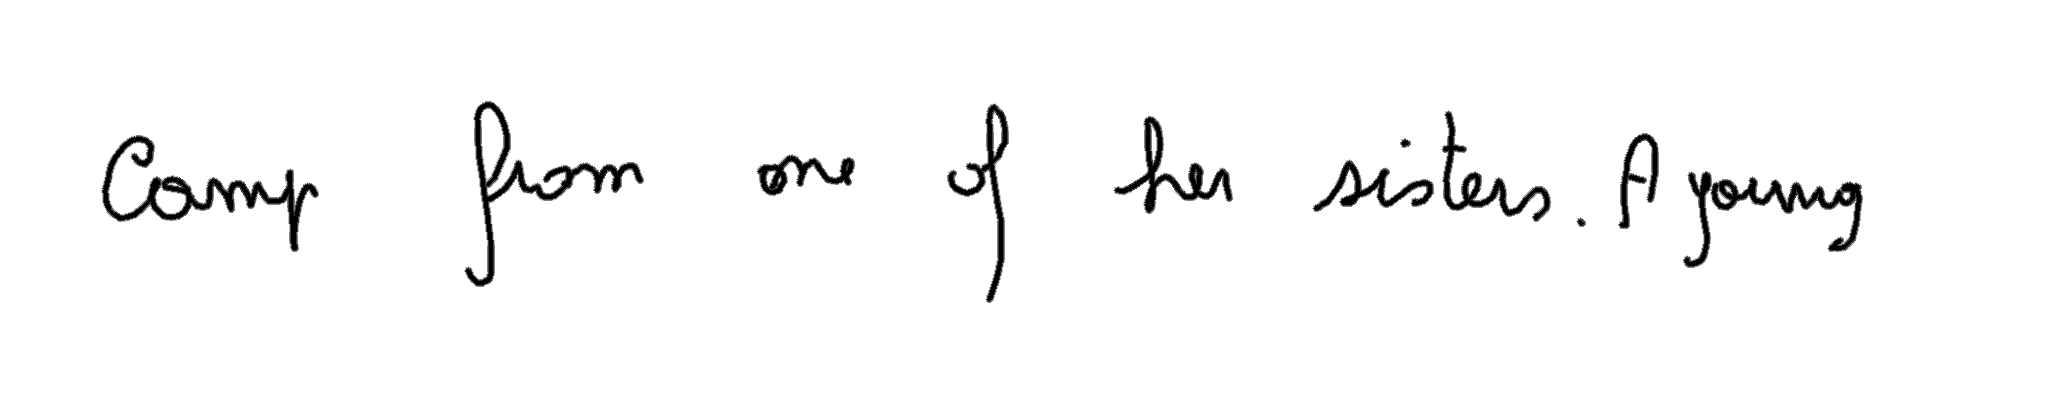 Camp from one of her sisters. A young